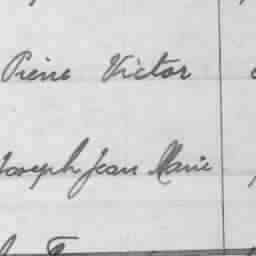 Pierre Victor
Joseph Jean Marie